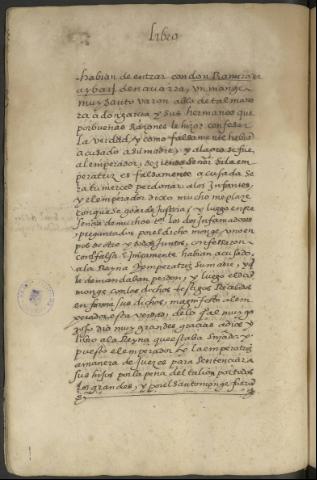 libro
habian de entrar con don Ramiro el
de navarra, Un monge
muy Santo varon ablo de tal mane
ra a don garcia y sus hermanos que
por buenas Razones le hizo confesar
la verdad, y como falsamente habia
acusado a su madre, y al punto se fue
al emperador, diziendo Señor la em
peratriz es falsamente acusada se
ra tu merced perdonar a los Infantes,
y el emperador dixo mucho me plaze
con que se goarde Justicia, y luego en pre
sencia de muchos los dos Infantes
preguntados por el dicho monge, uno em
pos de otro y todos Juntos, confesaron
con falsa Iniquamente habian acusado,
a la Reyna Emperatriz Su madre, y q̄
le demandaban perdon, y luego el dicho
monge con los dichos testigos
en forma sus dichos, magnifesto al em
perador esta verdad, de lo qual muy go
zoso dio muy grandes gracias a dios y
libro a la Reyna que estaba y
puesto el emperador y la emperatriz
a manera de Juezes para Sentenciar a
sus hijos por la pena del talion por todos
los grandes, y por el Santo monge fueron